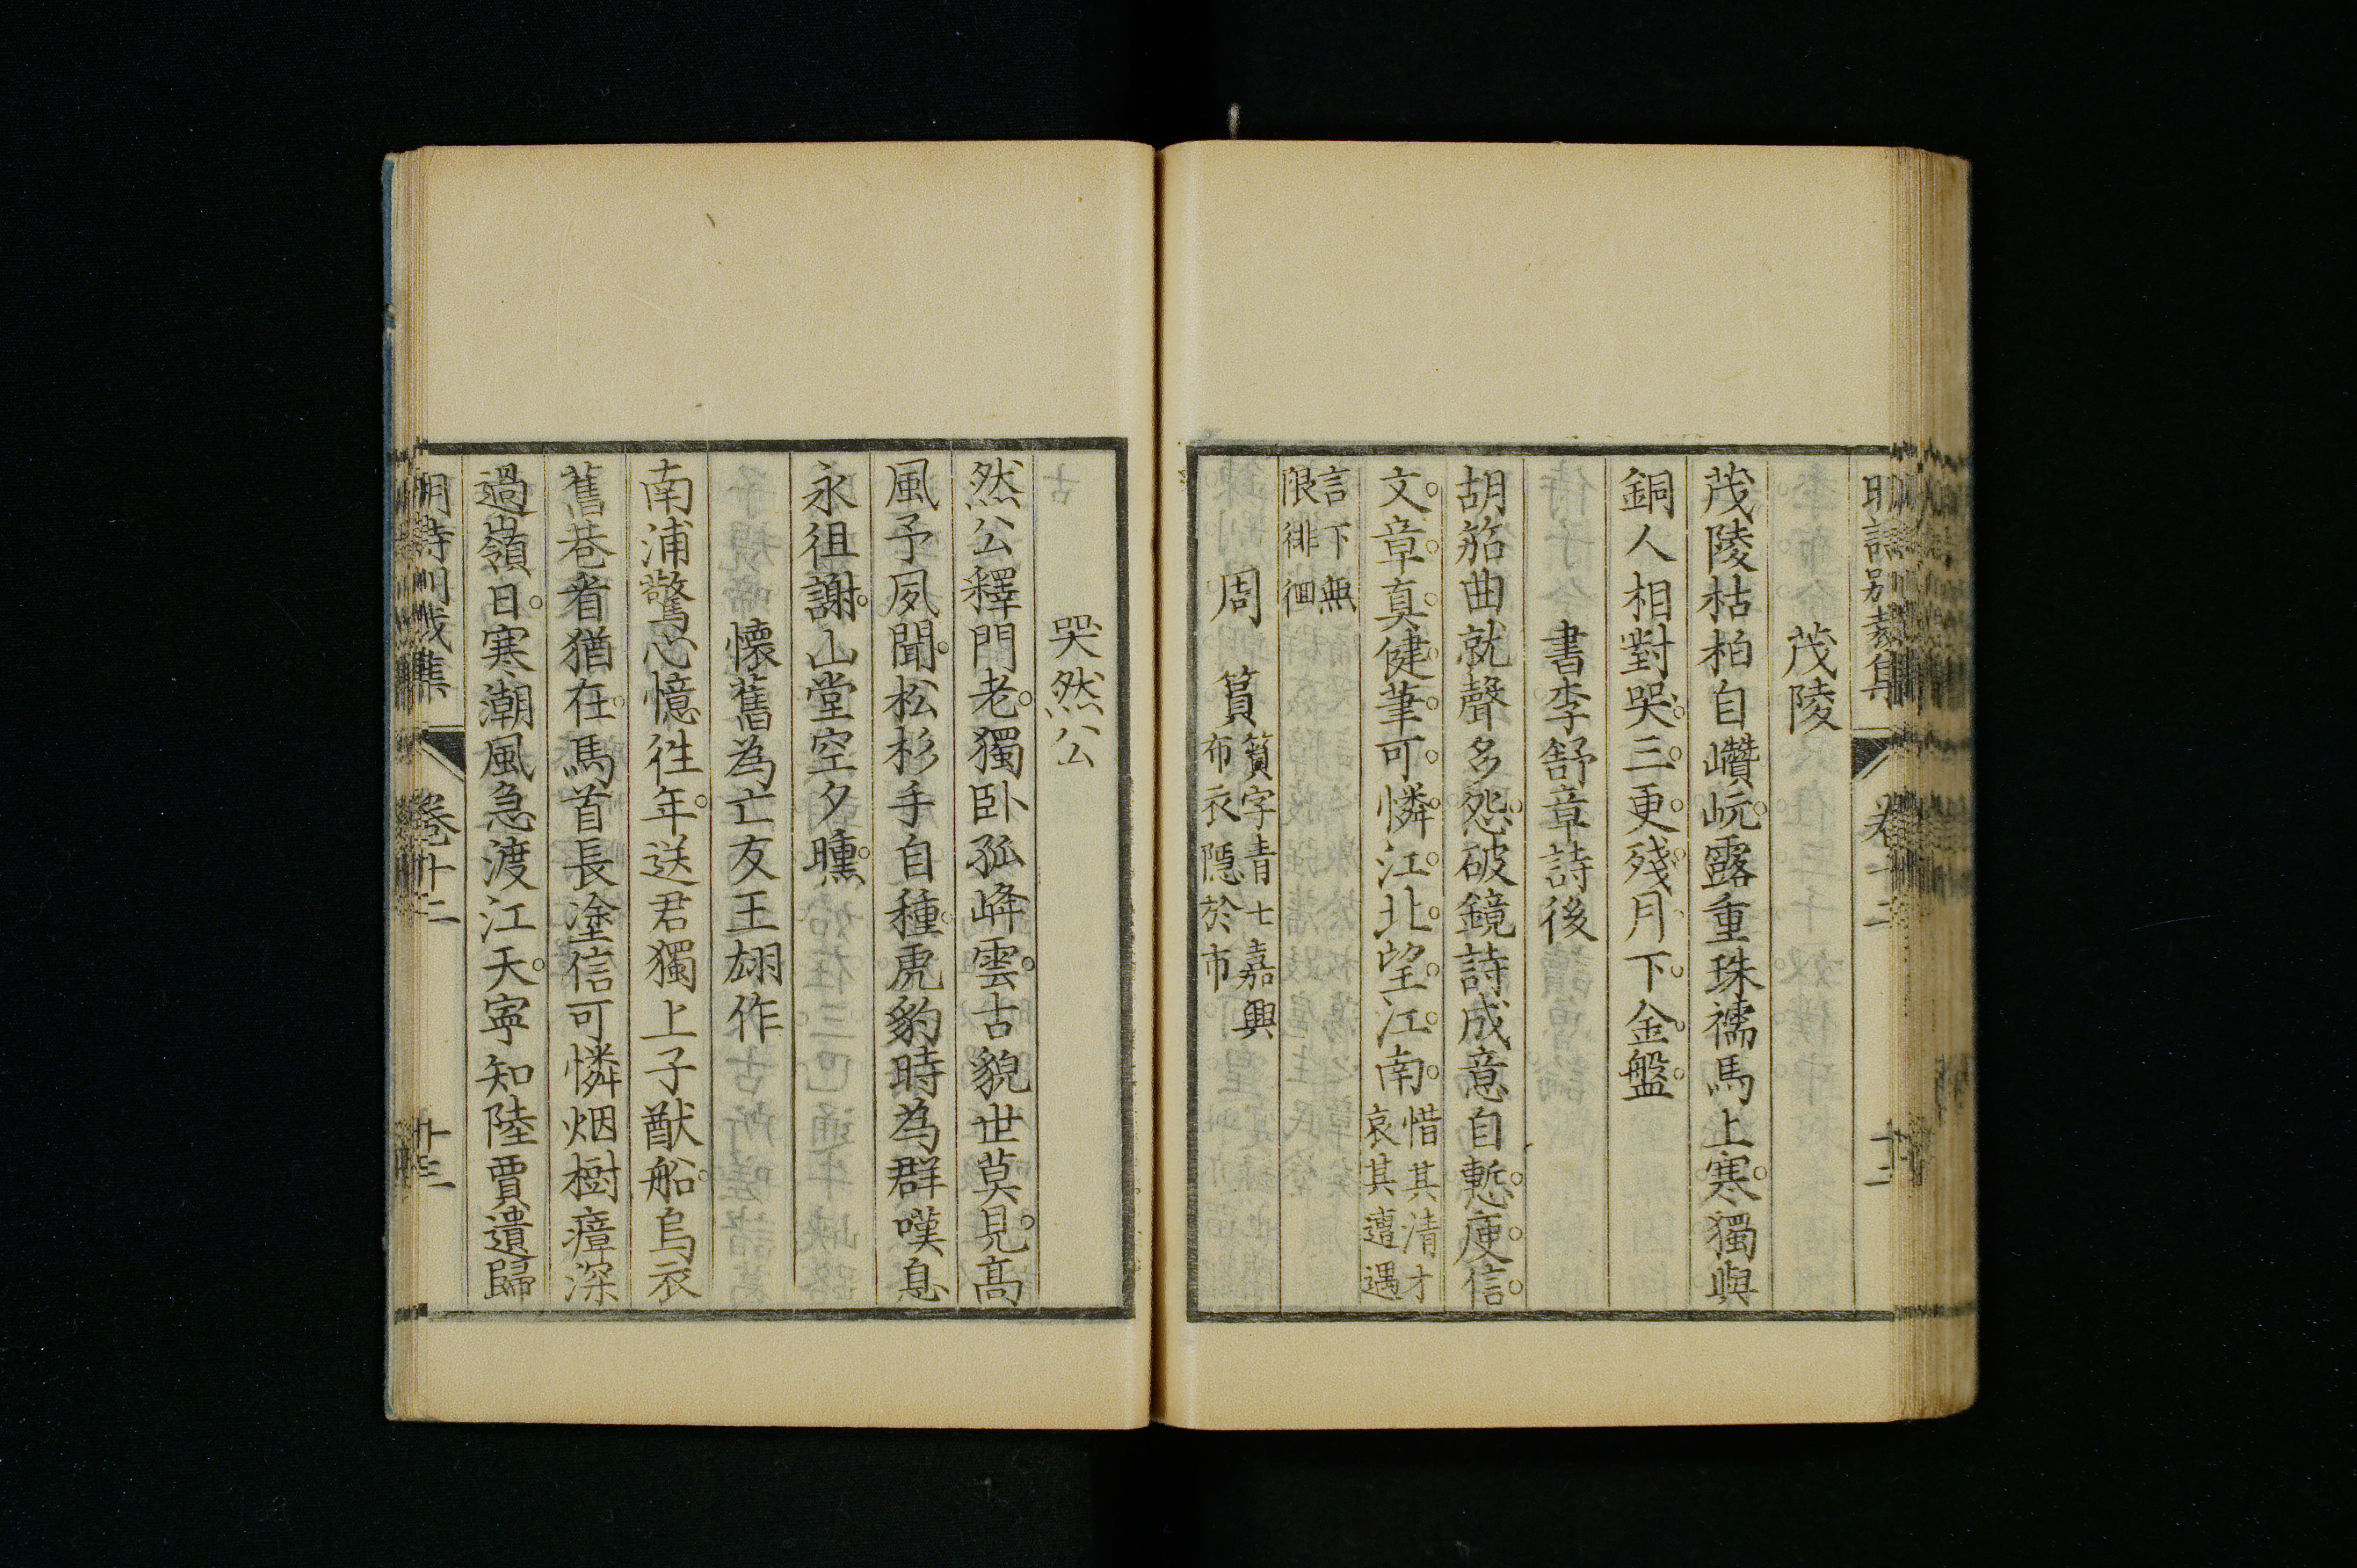 明詩別裁集 卷十二 十二
茂陵
茂陵枯柏自巑岏露重珠襦馬上寒獨與
銅人相對哭三更殘月下金盤
書李舒章詩後
胡笳曲就聲多怨破鏡詩成意自慙庾信
文章真健筆可憐江北望江南惜其清才哀其遭遇
言下無限徘徊
周篔篔字青士嘉興布衣隱於市
哭然公
然公釋門老獨臥孤峰雲古貌世莫見高
風予夙聞松杉手自種虎豹時為群嘆息
永徂謝山堂空夕曛
懷舊為亡友王翃作
南浦驚心憶往年送君獨上子猷船烏衣
舊巷看猶在馬首長塗信可憐烟樹瘴深
過嶺日寒潮風急渡江天寧知陸賈遺歸
明詩別裁集 卷十二 十三